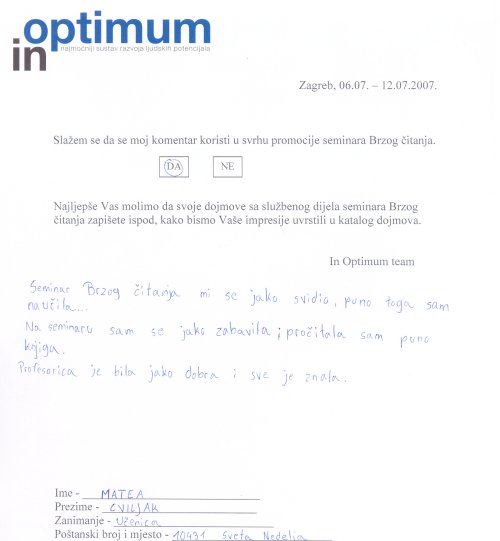 in optimum
najmoćniji sustav razvoja ljudskih potencijala
Zagreb, 06.07. – 12.07.2007.
Slažem se da se moj komentar koristi u svrhu promocije seminara Brzog čitanja.
DA NE
Najljepše Vas molimo da svoje dojmove sa službenog dijela seminara Brzog
čitanja zapišete ispod, kako bismo Vaše impresije uvrstili u katalog dojmova.
In Optimum team
Seminar Brzog čitanja mi se jako svidio, puno toga sam
naučila...
Na seminaru sam se jako zabavila i pročitala sam puno
knjiga.
Profesorica je bila jako dobra i sve je znala.
Ime - MATEA
Prezime - CVILJAK
Zanimanje - Učenica
Poštanski broj i mjesto - 10431 Sveta Nedelja